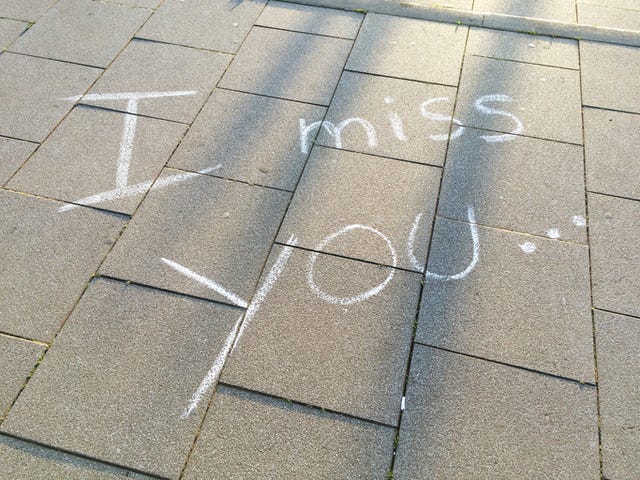 I miss
you...